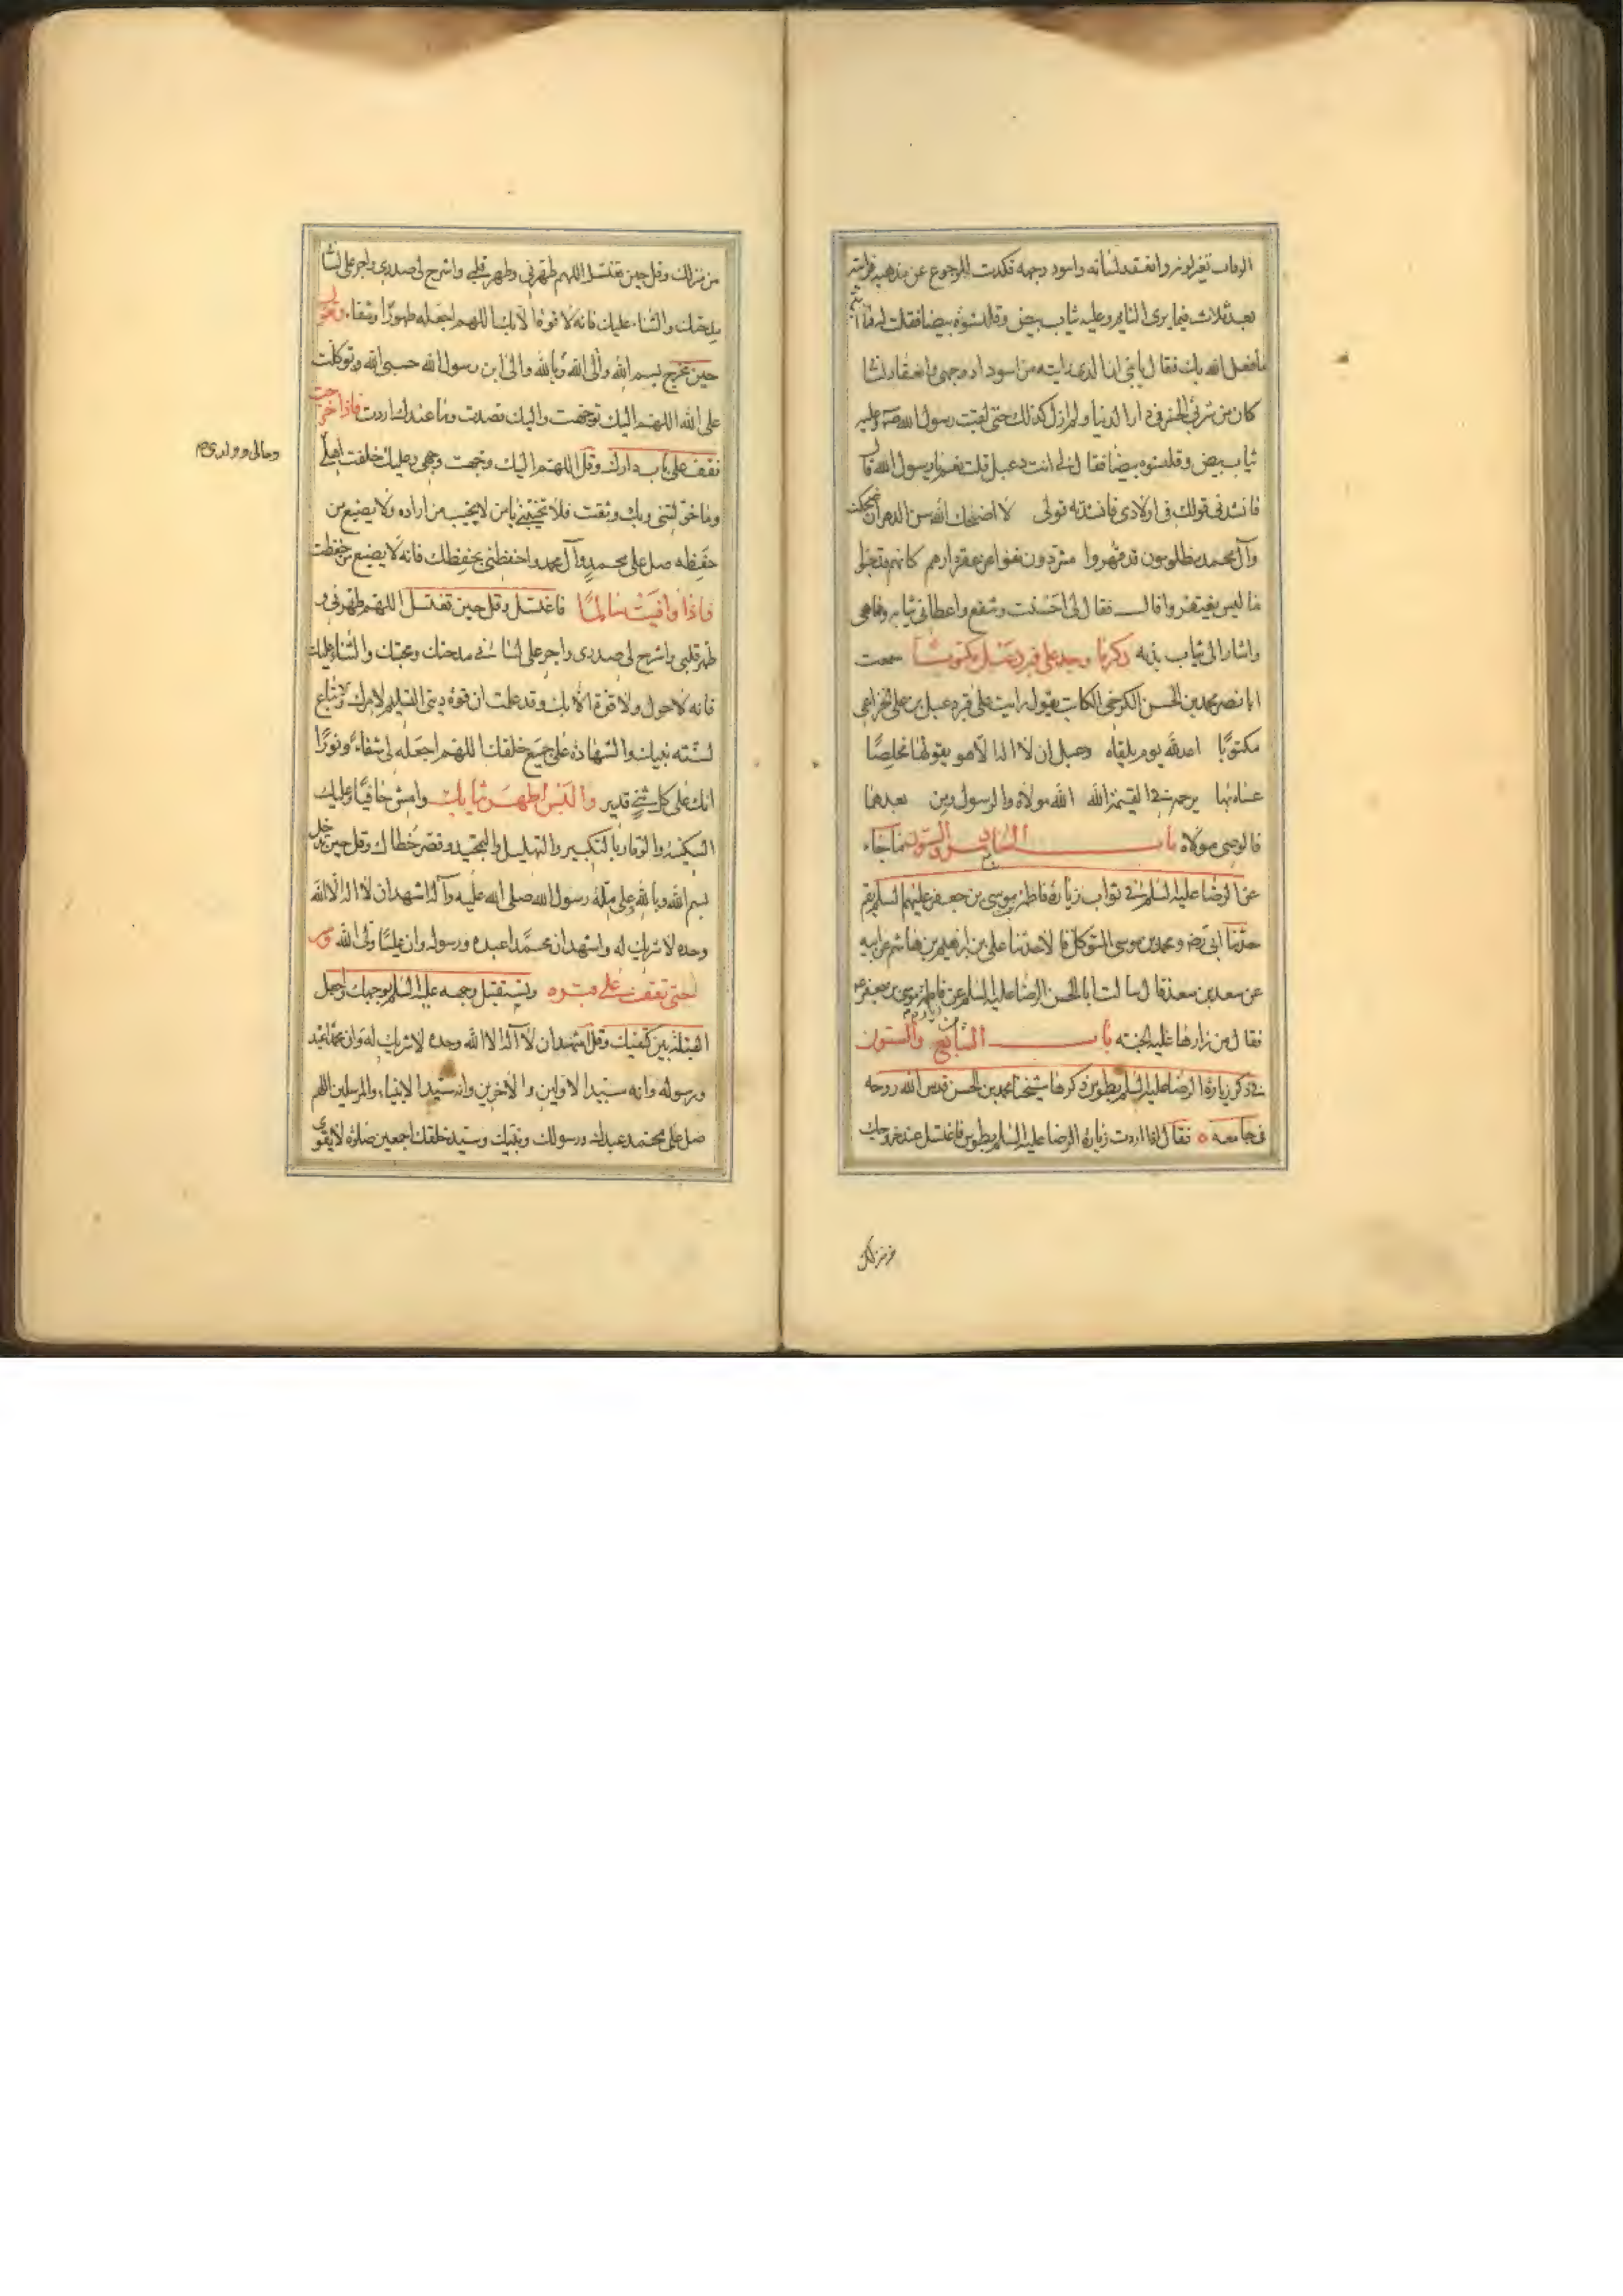 الوفاة تغير لونه وانعقد لسانه واسود وجهه فكدت الرجوع عن مذهبه فرايته
بعد ثلاث فيما يرى النايم وعليه ثياب بيض وقلنسوة بيضا فقلت له يا ابة
ما فعل الله بك فقال يا بني ان الذي رايته من اسوداد وجهي وانعقاد لسا
كان من شربي الخمر في دار الدنيا ولم ازل كذلك حتى لقيت رسول الله ص وعليه
ثياب بيض وقلنسوه بيضا فقال لي انت دعبل قلت نعم يا رسول الله قال
فانشدني قولك في اولادي فانشدته قولي لا اضحك الله سن الدهر ان ضحكت
وآل محمد مظلومون قد قهروا مشردون نفوا عن عقر دارهم كانهم قد جنوا
ما ليس يغتفر وا قال فقال لي احسنت وشفع واعطاني ثيابه وها هي
واشار الى ثياب بدنه ذكر ما وجد على قبر دعبل مكتوبا سمعت
ابا نصر محمد بن الحسن الكرخي الكاتب يقول رايت على قبر دعبل بن علي الخزاعي
مكتوبًا اعد لله يوم يلقاه دعبل ان لا اله الا هو يقولها مخلصًا
عساه بها يرحمه في القيمة الله الله مولاه والرسول ومن بعدهما
فالوصي مولاه باب السادس والستون فيما جاء
عن الرضا عليه السلم في ثواب زيارة فاطمة بنت موسى بن جعفر عليهم السلم بقم
حدثنا ابي رضه ومحمد بن موسى المتوكل قالا حدثنا علي بن ابراهيم بن هاشم عن ابيه
عن سعد بن سعد قال سالت ابا الحسن الرضا عليه السلم عن فاطمة بنت موسى بن جعفر ع
فقال من زارها فله الجنة باب السابع والستون
في ذكر زيارة الرضا عليه السلم بطوس ذكرها شيخنا محمد بن الحسن قدس الله روحه
في جامعه ه فقال اذا اردت زيارة الرضا عليه السلم بطوس فاغتسل عند خروجك
من منزلك
من منزلك وقل حين تغتسل اللهم طهرني وطهر قلبي واشرح لي صدري واجر على لسا
مدحتك والثناء عليك فانه لا قوة الا بك اللهم اجعله طهورًا وشفاء وتقول
حين تخرج بسم الله والى الله وبالله والى ابن رسول الله حسبي الله وتوكلت
على الله اللهم اليك توجهت واليك قصدت وما عندك اردت فاذا خرجت
فقف على باب دارك وقل اللهم اليك وجهت وجهي وعليك خلفت اهلي
ومالي وولدي
وما خولتني وبك وثقت فلا تخيبني يا من لا يخيب من اراده ولا يضيع من
حفظه صل على محمد وآل محمد واحفظني بحفظك فانه لا يضيع من حفظت
فاذا وافيت سالمًا فاغتسل وقل حين تغتسل اللهم طهرني و
طهر قلبي واشرح لي صدري واجر على لساني مدحتك ومحبتك والثناء عليك
فانه لا حول ولا قوة الا بك وقد علمت ان قوة ديني التسليم لامرك والاتباع
لسنة نبيك والشهادة على جميع خلقك اللهم اجعله لي شفاءً ونورًا
انك على كل شيء قدير والبس اطهر ثيابك وامش حافيًا وعليك
السكينة والوقار بالتكبير والتهليل والتمجيد وقصر خطاك وقل حين تدخل
بسم الله وبالله وعلى ملة رسول الله صلى الله عليه وآله اشهد ان لا اله الا الله
وحده لا شريك له واشهد ان محمدًا عبده ورسوله وان عليًا ولي الله وسر
حتى تقف على قبره وتستقبل وجهه عليه السلم بوجهك واجعل
القبلة بين كتفيك وقل اشهد ان لا اله الا الله وحده لا شريك له وان محمدًا عبده
ورسوله وانه سيد الاولين والاخرين وانه سيد الانبياء والمرسلين اللهم
صل على محمد عبدك ورسولك ونبيك وسيد خلقك اجمعين صلوة لا يقوى